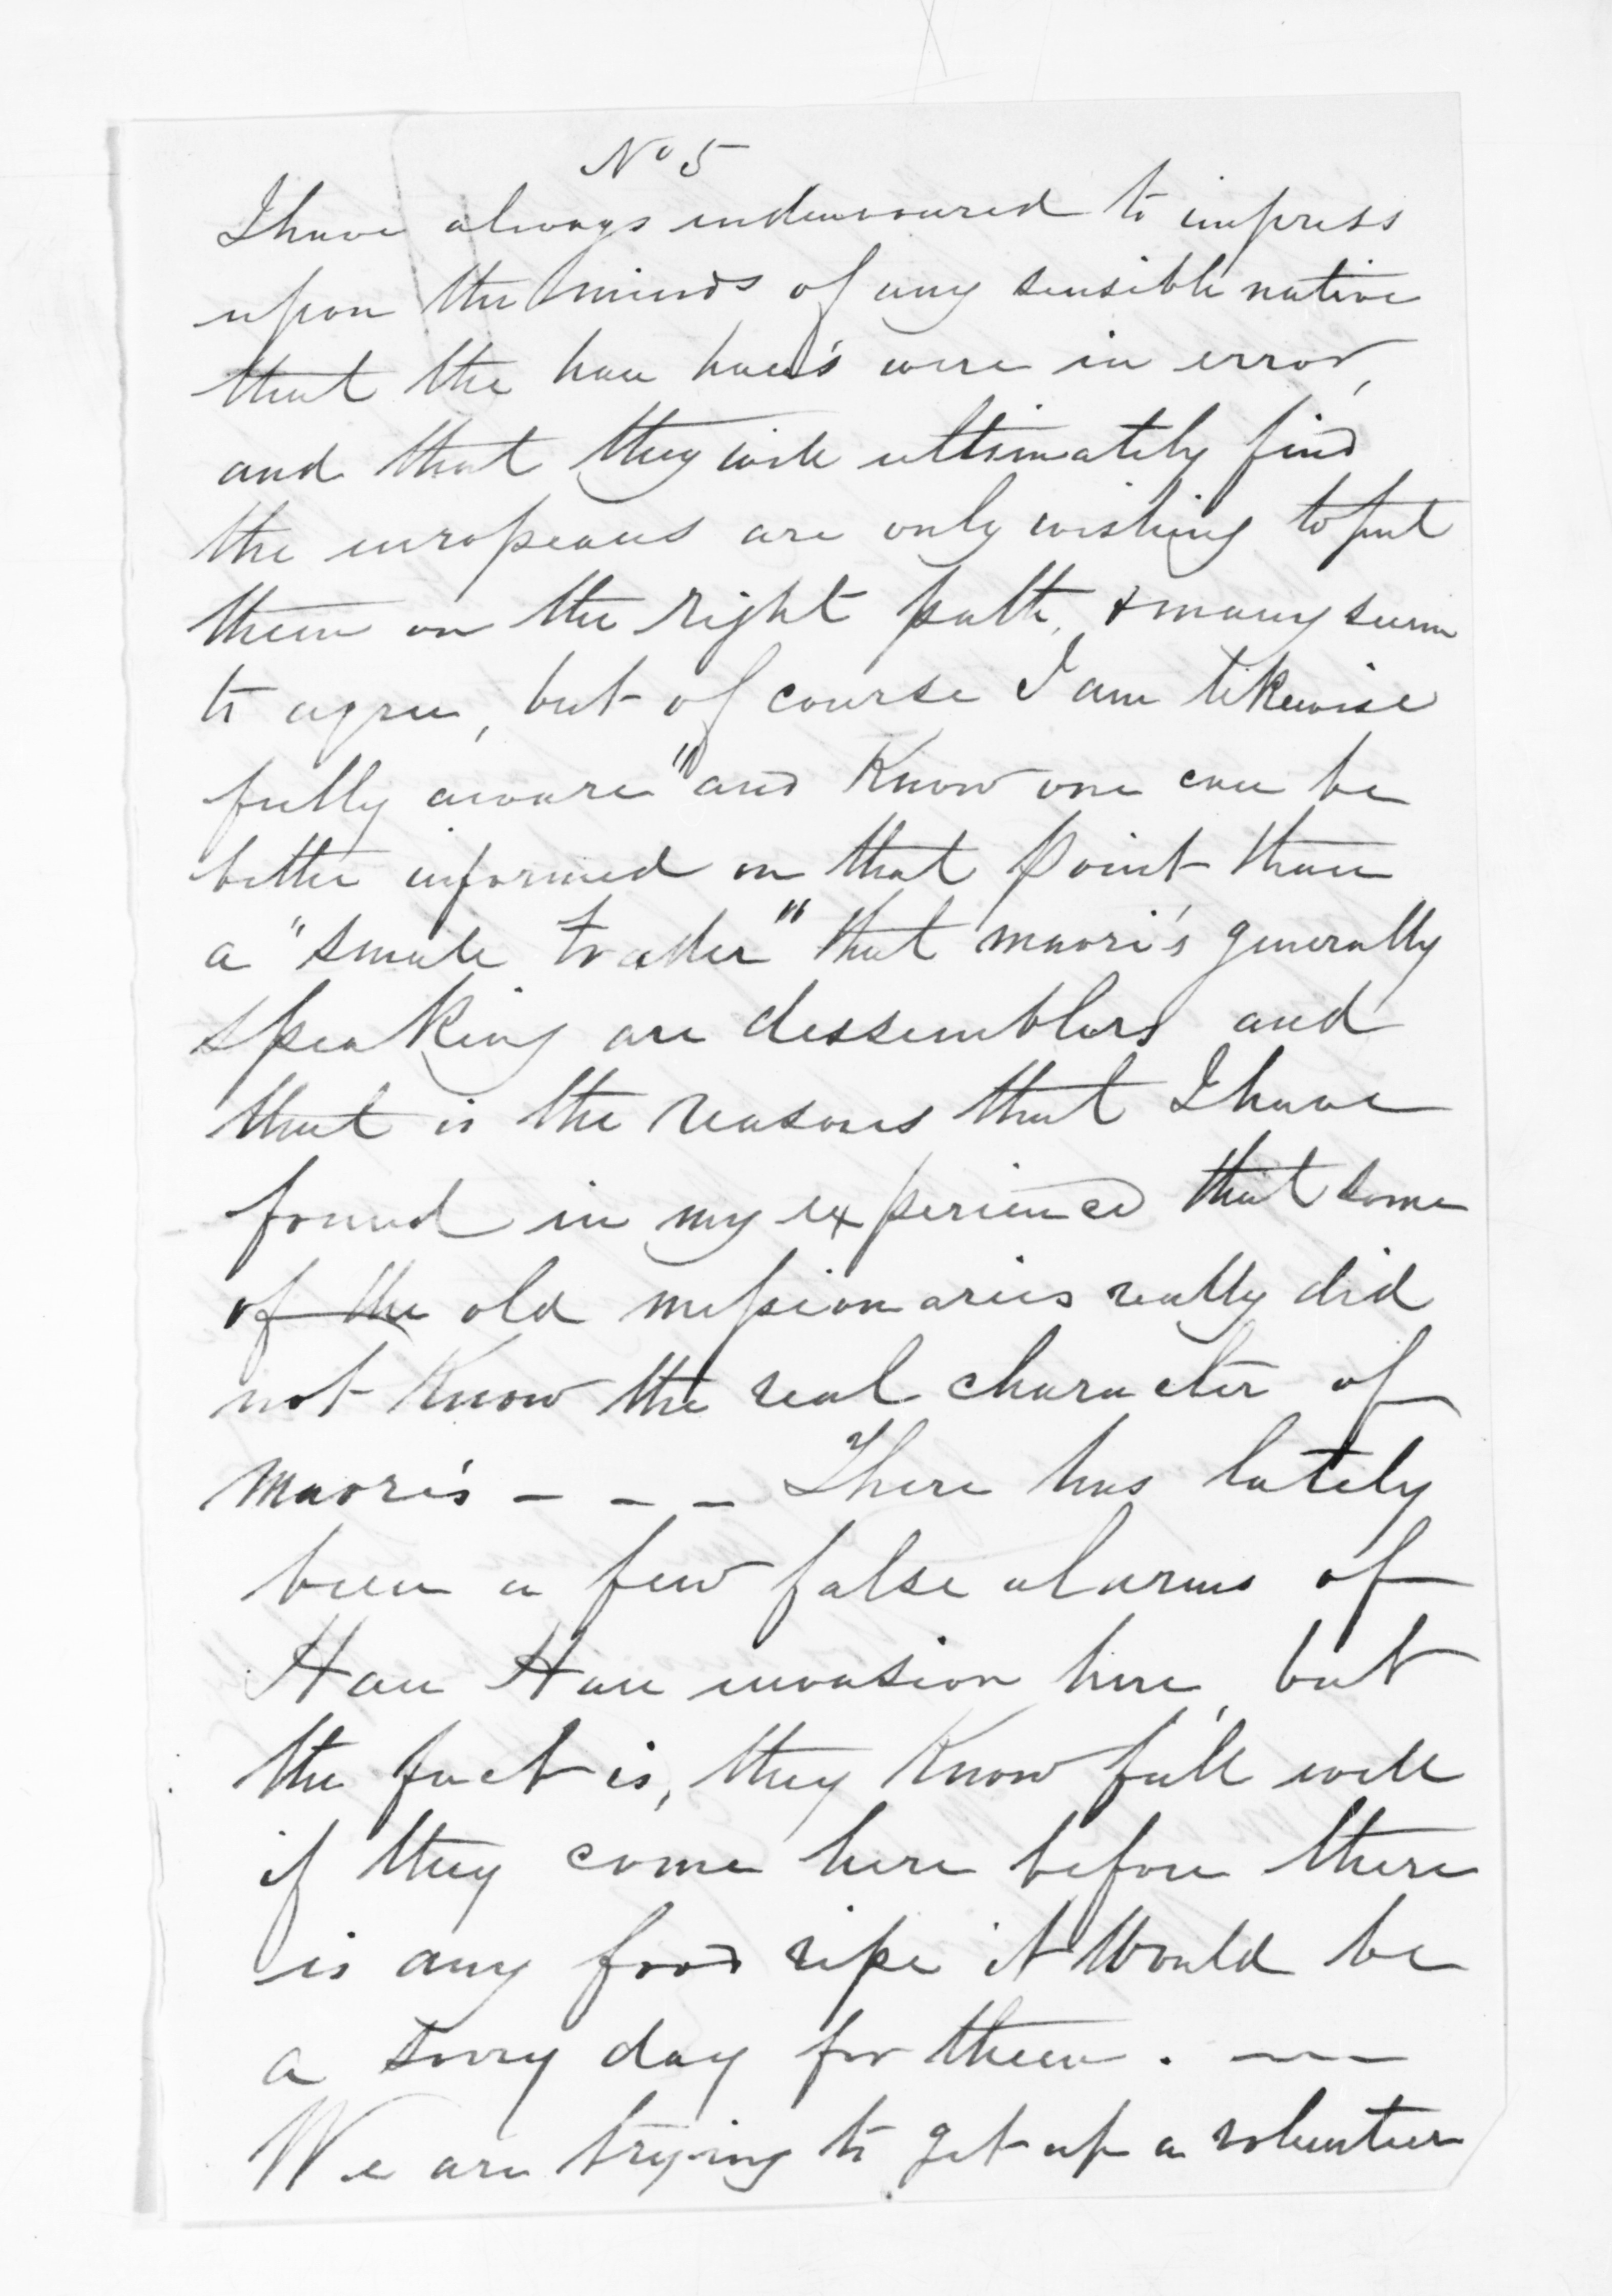 No 5
I have always endeavoured to impress
upon the minds of any sensible native
that the hau hau's were in error,
and that they will ultimately find
the europeans are only wishing to put
them on the right path, & many seem
to agree, but of course I am likewise
fully aware "and know one can be
better informed on that point than
a "small trader" that maori's generally
speaking are dessemblers and
that is the reasons that I have
found in my experience that some
of the old missionaries really did
not know the real character of
maori's - - - There has lately
been a few false alarms of
Hau Hau invasion here, but
the fact is, they know full well
if they come here before there
is any food ripe it would be
a sorry day for them. ---
We are trying to get up a volunteer